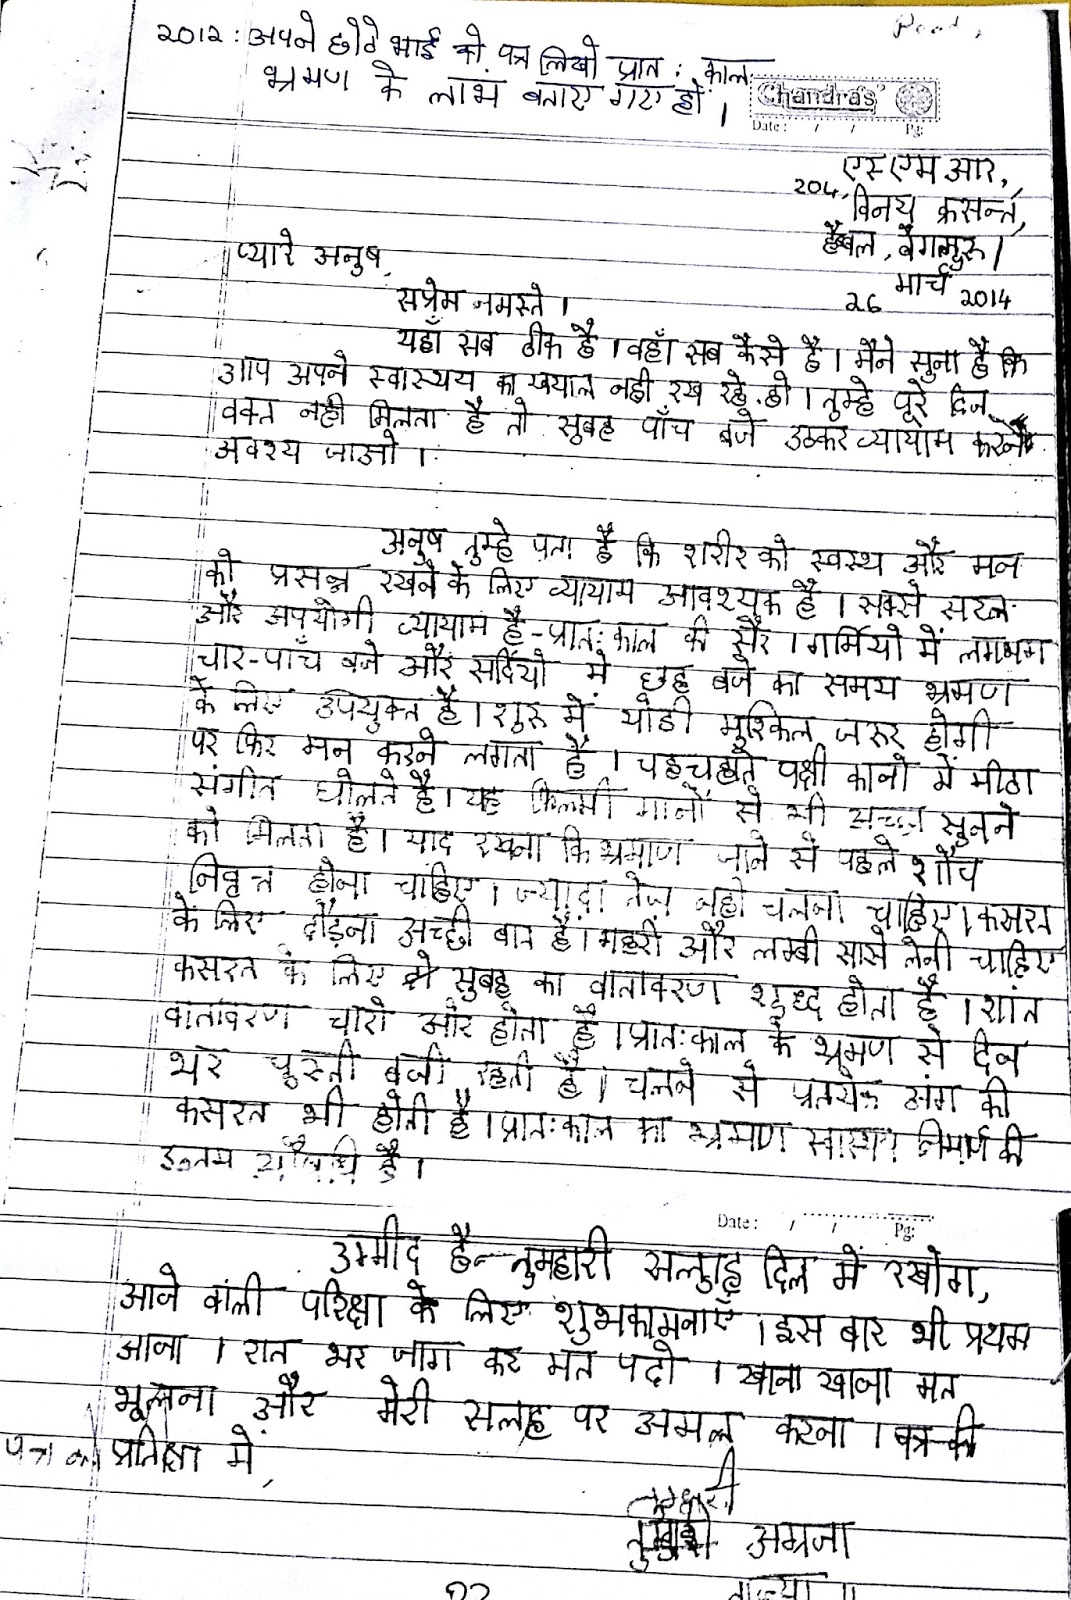 Read,
2012: अपने छोटे भाई को पत्र लिखो प्रात: काल
भ्रमण के लाभ बताए गए हों।
Chandra's
Date: / / Pg:
एस एम आर,
204, विनय क्रसन्त,
हैब्बल, बैंगलुरु।
26 मार्च 2014
प्यारे अनुष,
सप्रेम नमस्ते।
यहाँ सब ठीक है। वहाँ सब कैसे है। मैने सुना है कि
आप अपने स्वास्थय का खयाल नही रख रहे हो। तुम्हे पूरे दिन
वक्त नही मिलता है तो सुबह पाँच बजे उठकर व्यायाम करने
अवश्य जाओ।
अनुष तुम्हे पता है कि शरीर को स्वस्थ और मन
को प्रसन्न रखने के लिए व्यायाम आवश्यक है। सबसे सरल
और उपयोगी व्यायाम है-प्रात:काल की सैर। गर्मियो में लगभग
चार-पाँच बजे और सर्दियो में छह बजे का समय भ्रमण
के लिए उपयुक्त है। शुरु में थोडी मुश्किल जरुर होगी
पर फिर मन करने लगता है। चहचहाते पक्षी कानो में मीठा
संगीत घोलते है। यह फिलमी गानों से भी अच्छा सुनने
को मिलता है। याद रखना कि भ्रमाण जाने से पहले शौच
निवृत्त होना चाहिए। ज्यादा तेज नही चलना चाहिए। कसरत
के लिए दौड़ना अच्छी बात है। गहरी और लम्बी सासे लेनी चाहिए
कसरत के लिए सुबह का वातावरण शुद्ध होता है। शांत
वातावरण चारो ओर होता है। प्रात:काल के भ्रमण से दिन
भर चुस्ती बनी रहती है। चलने से प्रतयेक अंग की
कसरत भी होती है। प्रात:काल का भ्रमाण निमार्ण की
उत्तम औषधि है।
Date: / / Pg:
उम्मीद है- तुमहारी सलाह दिल में रखोग,
आने वाली परिक्षा के लिए शुभकामनाएँ। इस बार भी प्रथम
आना। रात भर जाग कर मत पढो। खाना खाना मत
भूलना और मेरी सलाह पर अमल करना।
पत्र की प्रतिक्षा में,
तुम्हारी
अग्रजा